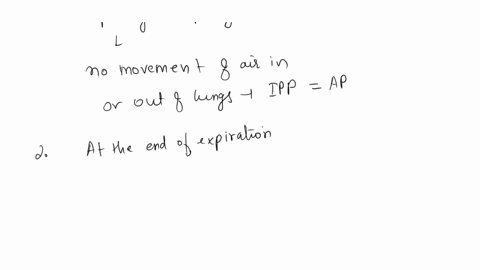 no movement of air in
or out of lungs → IPP = AP
2. At the end of expiration